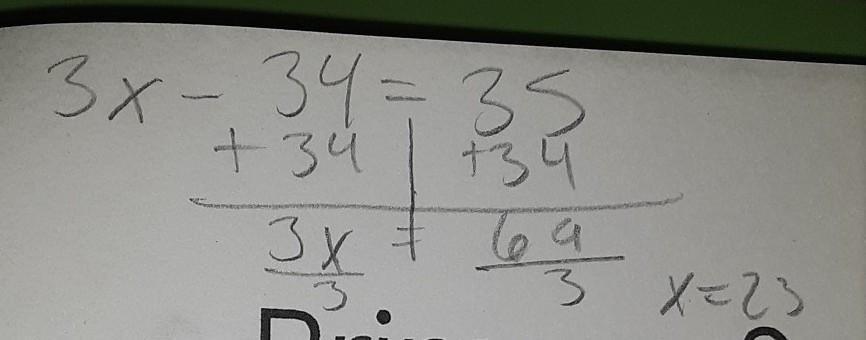 3x - 34 = 35
+ 34 | +34
3x = 69
3 3 x=23